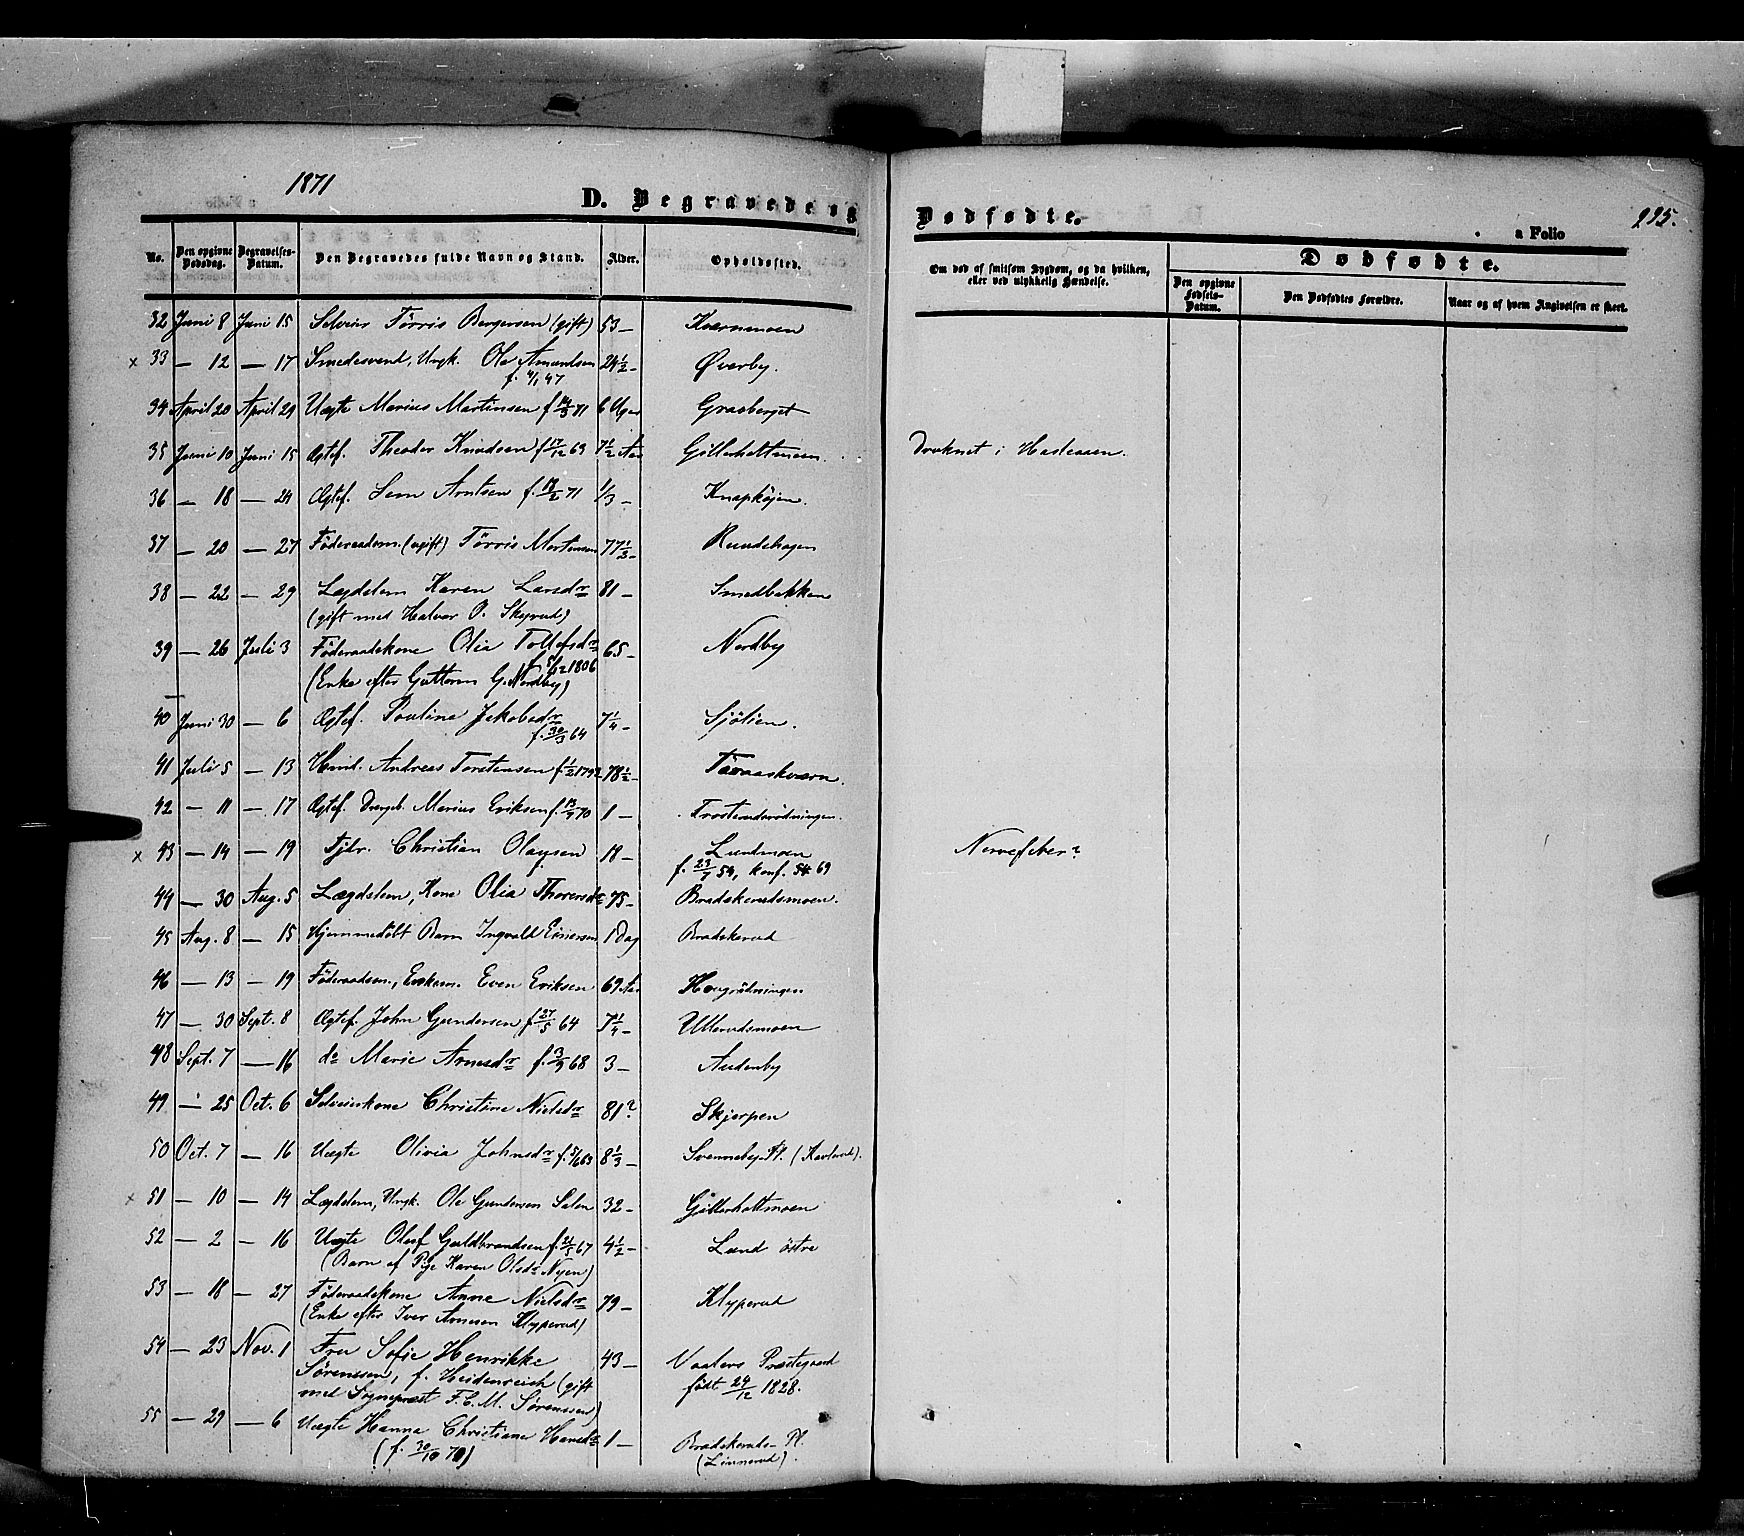 1871
D. Begravede og Dødfødte.
a Folio
225.
No.
Den opgivne Dødsdag.
Begravelses-Datum.
Den Begravedes fulde Navn og Stand.
Alder.
Opholdssted.
Om død af smitsom Sygdom, og da hvilken, eller ved ulykkelig Hændelse.
Dødfødte.
Den opgivne Fødsels-Datum.
Den Dødfødtes Forældre.
Naar og af hvem Angivelsen er skeet.
32 Juni 8 Juni 15 Selveier Törris Bergersen (gift) 53 —
x 33 — 12 — 17 Smedesvend, Ungk. Ole Amundsen 24½ — Øverby.
f. 4/1 47
34 April 20 April 29 Uægte Marius Martinsen f 14/3 71 6 Uger Graaberget
35 Juni 10 Juni 15 Ægtef. Theodor Knudsen f 17/12 63 7½ Aar Gitterholtmoen. Druknet i Hasleaaen.
36 — 18 — 24 Ægtef. Arntsen f. 18/2 71 1/3 — Knapköien.
37 — 20 — 27 Föderaadsm. (ugift) Törris Mortensen 77½ — Rundhagen
38 — 22 — 29 Lægdslem Karen Larsdr 81 — Smedbakken
(gift med Halvor O. Skyrud)
39 — 26 Juli 3 Föderaadskone Olia Tollefsdr 65 — Nordby
f. 5/12 1806
(Enke efter Guttorm G. Nordby)
40 Juni 30 — 6 Ægtef. Pauline Jakobsdr 7¼ — Sjölien.
f. 30/3 64
41 Juli 5 — 13 Huusm. Andreas Torstensen f 1/2 1792 78½ —
42 — 11 — 17 Ægtef. Drengeb. Marius Eriksen f. 13/7 70 1 —
x 43 — 14 — 19 Tjdr. Christian Olaysen 18 — Lundmoen Nervefeber?
f. 23/7 54, konf. 69
44 — 30 Aug. 5 Lægdslem, Kone Olia Thorersdr 75 — Bradskerudsmoen.
45 Aug. 8 — 15 Hjemmedöbt Barn Ingvald Einersen 1 Dag Bradskerud
46 — 13 — 19 Föderaadsm., Enkem. Even Eriksen 69 Aar Haugrödningen
47 — 30 Sept. 8 Ægtef. John Gundersen f 27/5 64 7¼ — Ullerudsmoen
48 Sept. 7 — 16 do Marie Arnesdr f. 3/9 68 3 — Audenby
49 — 25 Oct. 6 Selveierkone Christine Nielsdr 81? Skjerpen
50 Oct. 7 — 16 Uægte Olivia Johnsdr f. 5/6 63 8⅓ — Svenneby Pl. (Karlsrud).
x 51 — 10 — 14 Lægdslem, Ungk. Ole Gundersen Salen 32 — Gitterholtmoen
52 — 2 — 16 Uægte Oluf Guldbrandsen f. 21/5 67 4½ — Lund östre
(Barn af Pige Karen Olsdr Nyen)
53 — 18 — 27 Föderaadskone Anne Nielsdr 79 — Klyperud
(Enke efter Iver Arnesen Klyperud)
54 — 23 Nov. 1 Fru Sofie Henrikke 43 — Vaalers Præstegaard
Sörenssen, f. Heidenreich (gift födt 24/12 1828.
med Sognepræst F.C.M. Sörenssen)
55 — 29 — 6 Uægte Hanna Christiane Hansdr 1 — Bradskeruds-Pl.
(f. 30/10 70) (Linnerud).